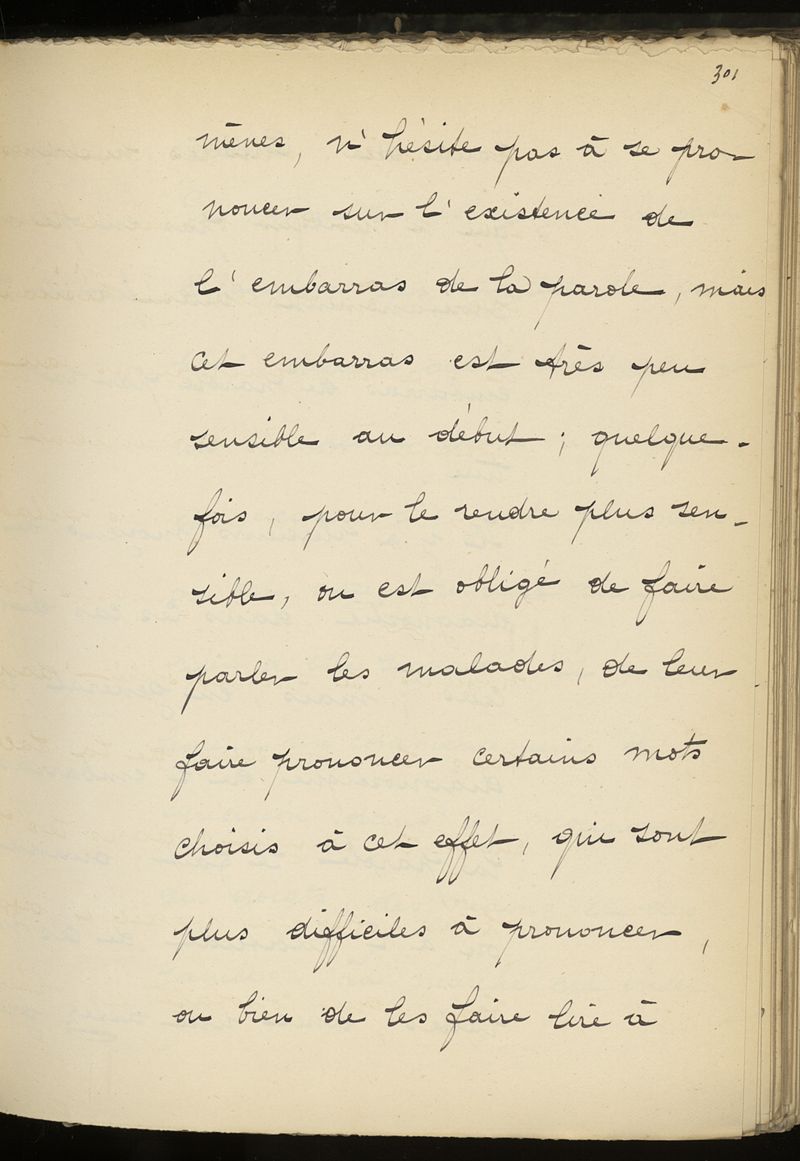 301
mènes, n'hésite pas à se pro-
noncer sur l'existence de
l'embarras de la parole, mais
cet embarras est très peu
sensible au début ; quelque-
fois, pour le rendre plus sen-
sible, on est obligé de faire
parler les malades, de leur
faire prononcer certains mots
choisis à cet effet, qui sont
plus difficiles à prononcer,
ou bien de les faire lire à